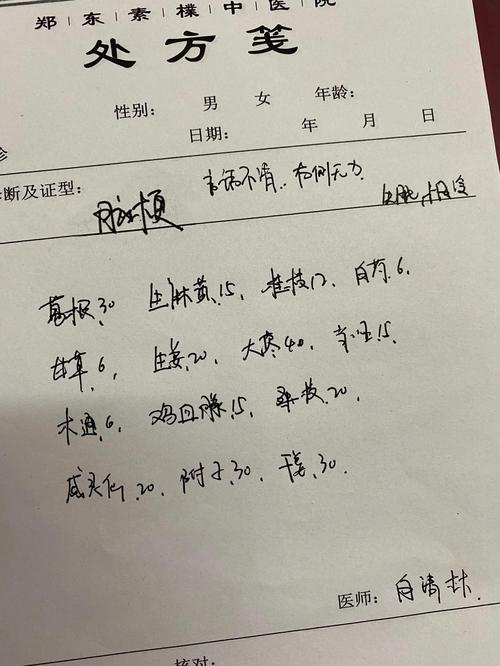 郑东素樸中医院
处方笺
性别： 男 女 年龄：
日期： 年 月 日
诊
断及证型： 脑梗 言语不清.. 右侧无力
葛根.30 生麻黄.15, 桂枝12, 白芍.6
甘草.6, 生姜.20, 大枣40, 当归.15
木通.6, 鸡血藤.15, 桑枝.20.
威灵仙.20, 附子.30, 干姜.30.
医师：
核对：